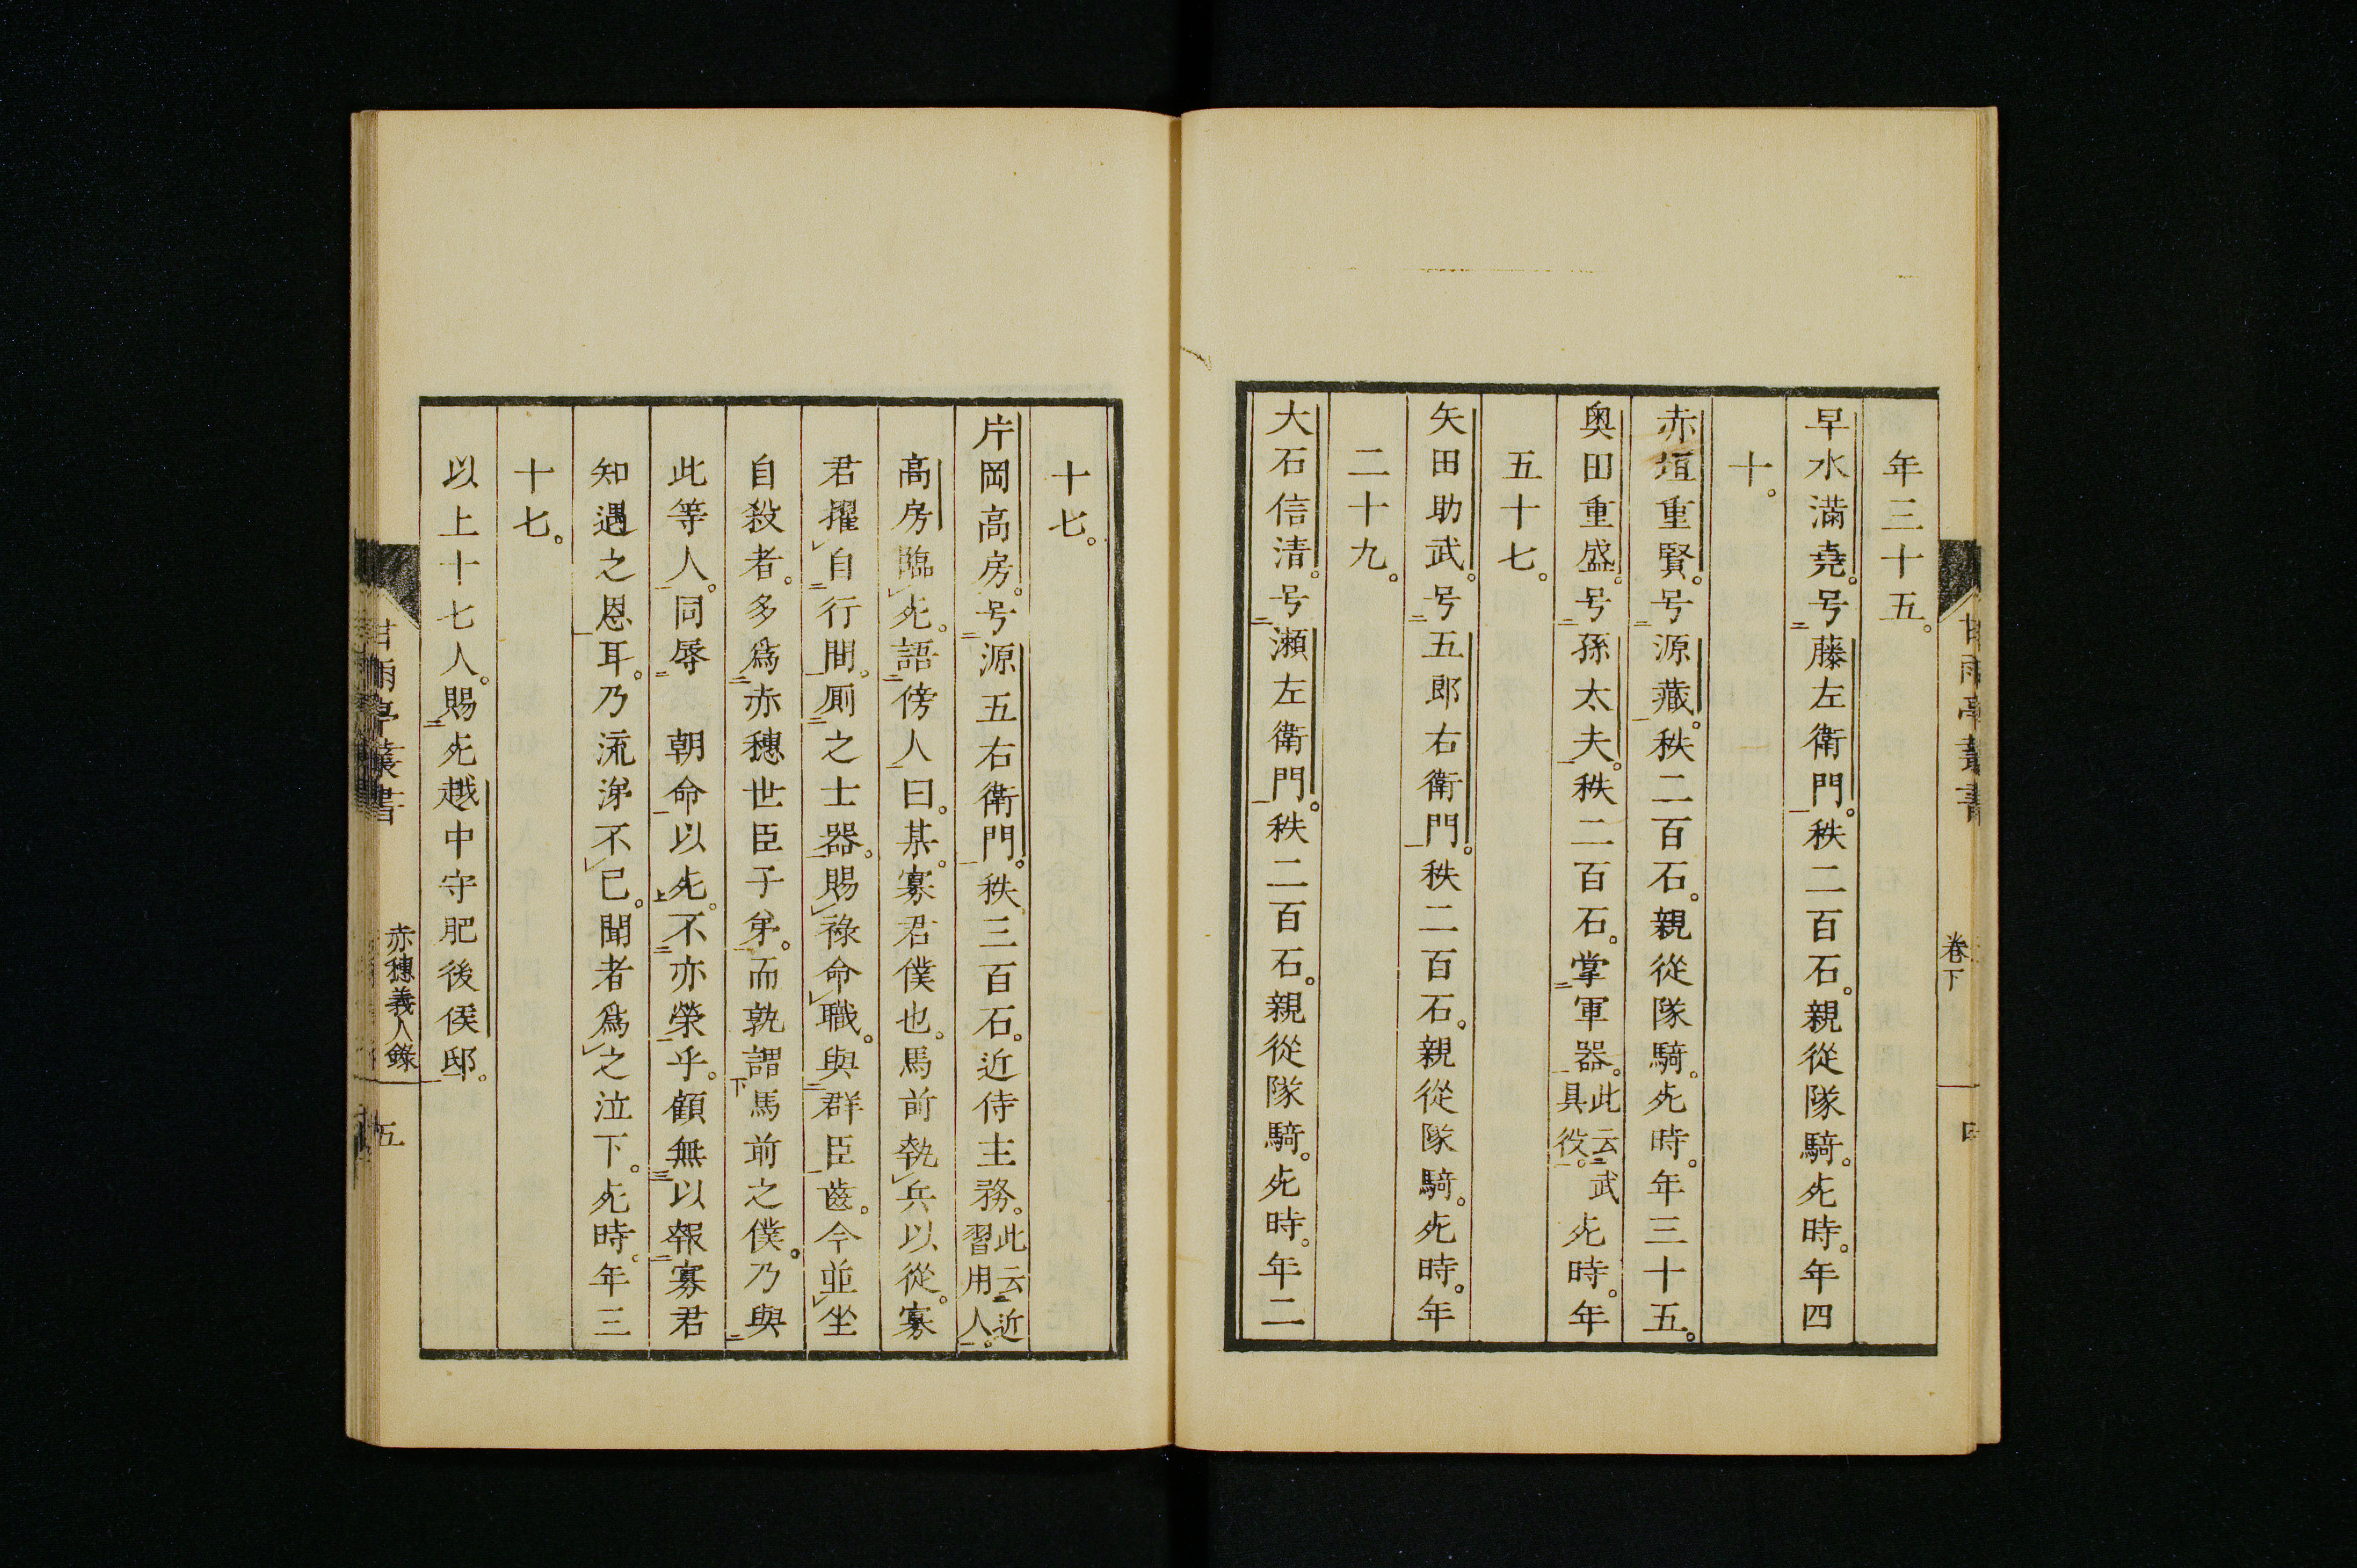 年三十五。
早水滿堯。号藤左衛門。秩二百石。親從隊騎。死時。年四
十。
赤垣重賢。号源藏。秩二百石。親從隊騎。死時。年三十五。
奥田重盛。号孫太夫。秩二百石。掌軍器。此云武具役。死時。年
五十七。
矢田助武。号五郎右衛門。秩二百石。親從隊騎。死時。年
二十九。
大石信清。号瀬左衛門。秩二百石。親從隊騎。死時。年二
甘雨亭叢書
卷下
十七。
片岡高房。号源五右衛門。秩三百石。近侍主務。此云近習用人。
高房臨死。語傍人曰。某。寡君僕也。馬前執兵以從。寡
君擢自行間。厠之士器。賜祿命職。與群臣齒。今並坐
自殺者。多爲赤穗世臣子弟。而孰謂馬前之僕。乃與
此等人。同辱 朝命以死。不亦榮乎。顧無以報寡君
知遇之恩耳。乃流涕不已。聞者爲之泣下。死時。年三
十七。
以上十七人。賜死越中守肥後侯邸。
甘雨亭叢書
赤穗義人錄
五